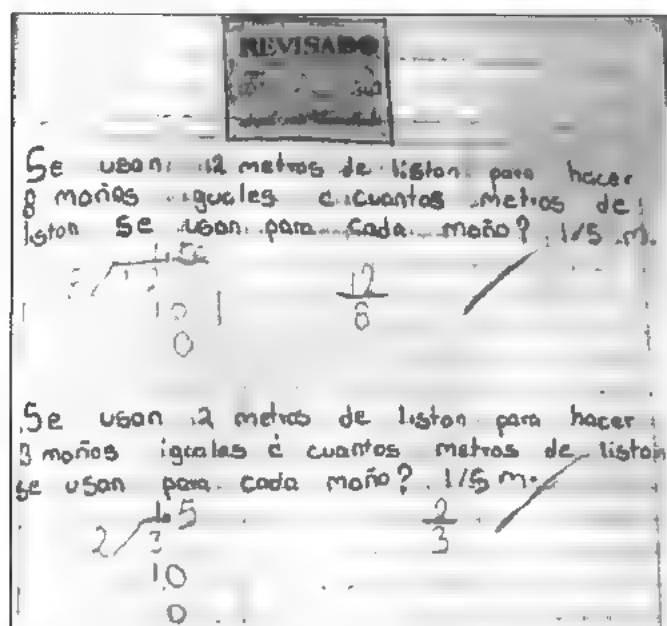 REVISADO
Se usan 12 metros de liston para hacer
8 moños iguales ¿cuantos metros de
liston se usan para cada moño? 1/5 m.
12
8
0
Se usan 2 metros de liston para hacer
3 moños iguales ¿ cuantos metros de liston
se usan para cada moño? 1/5 m.
1.5
2
2 3
3
10
0